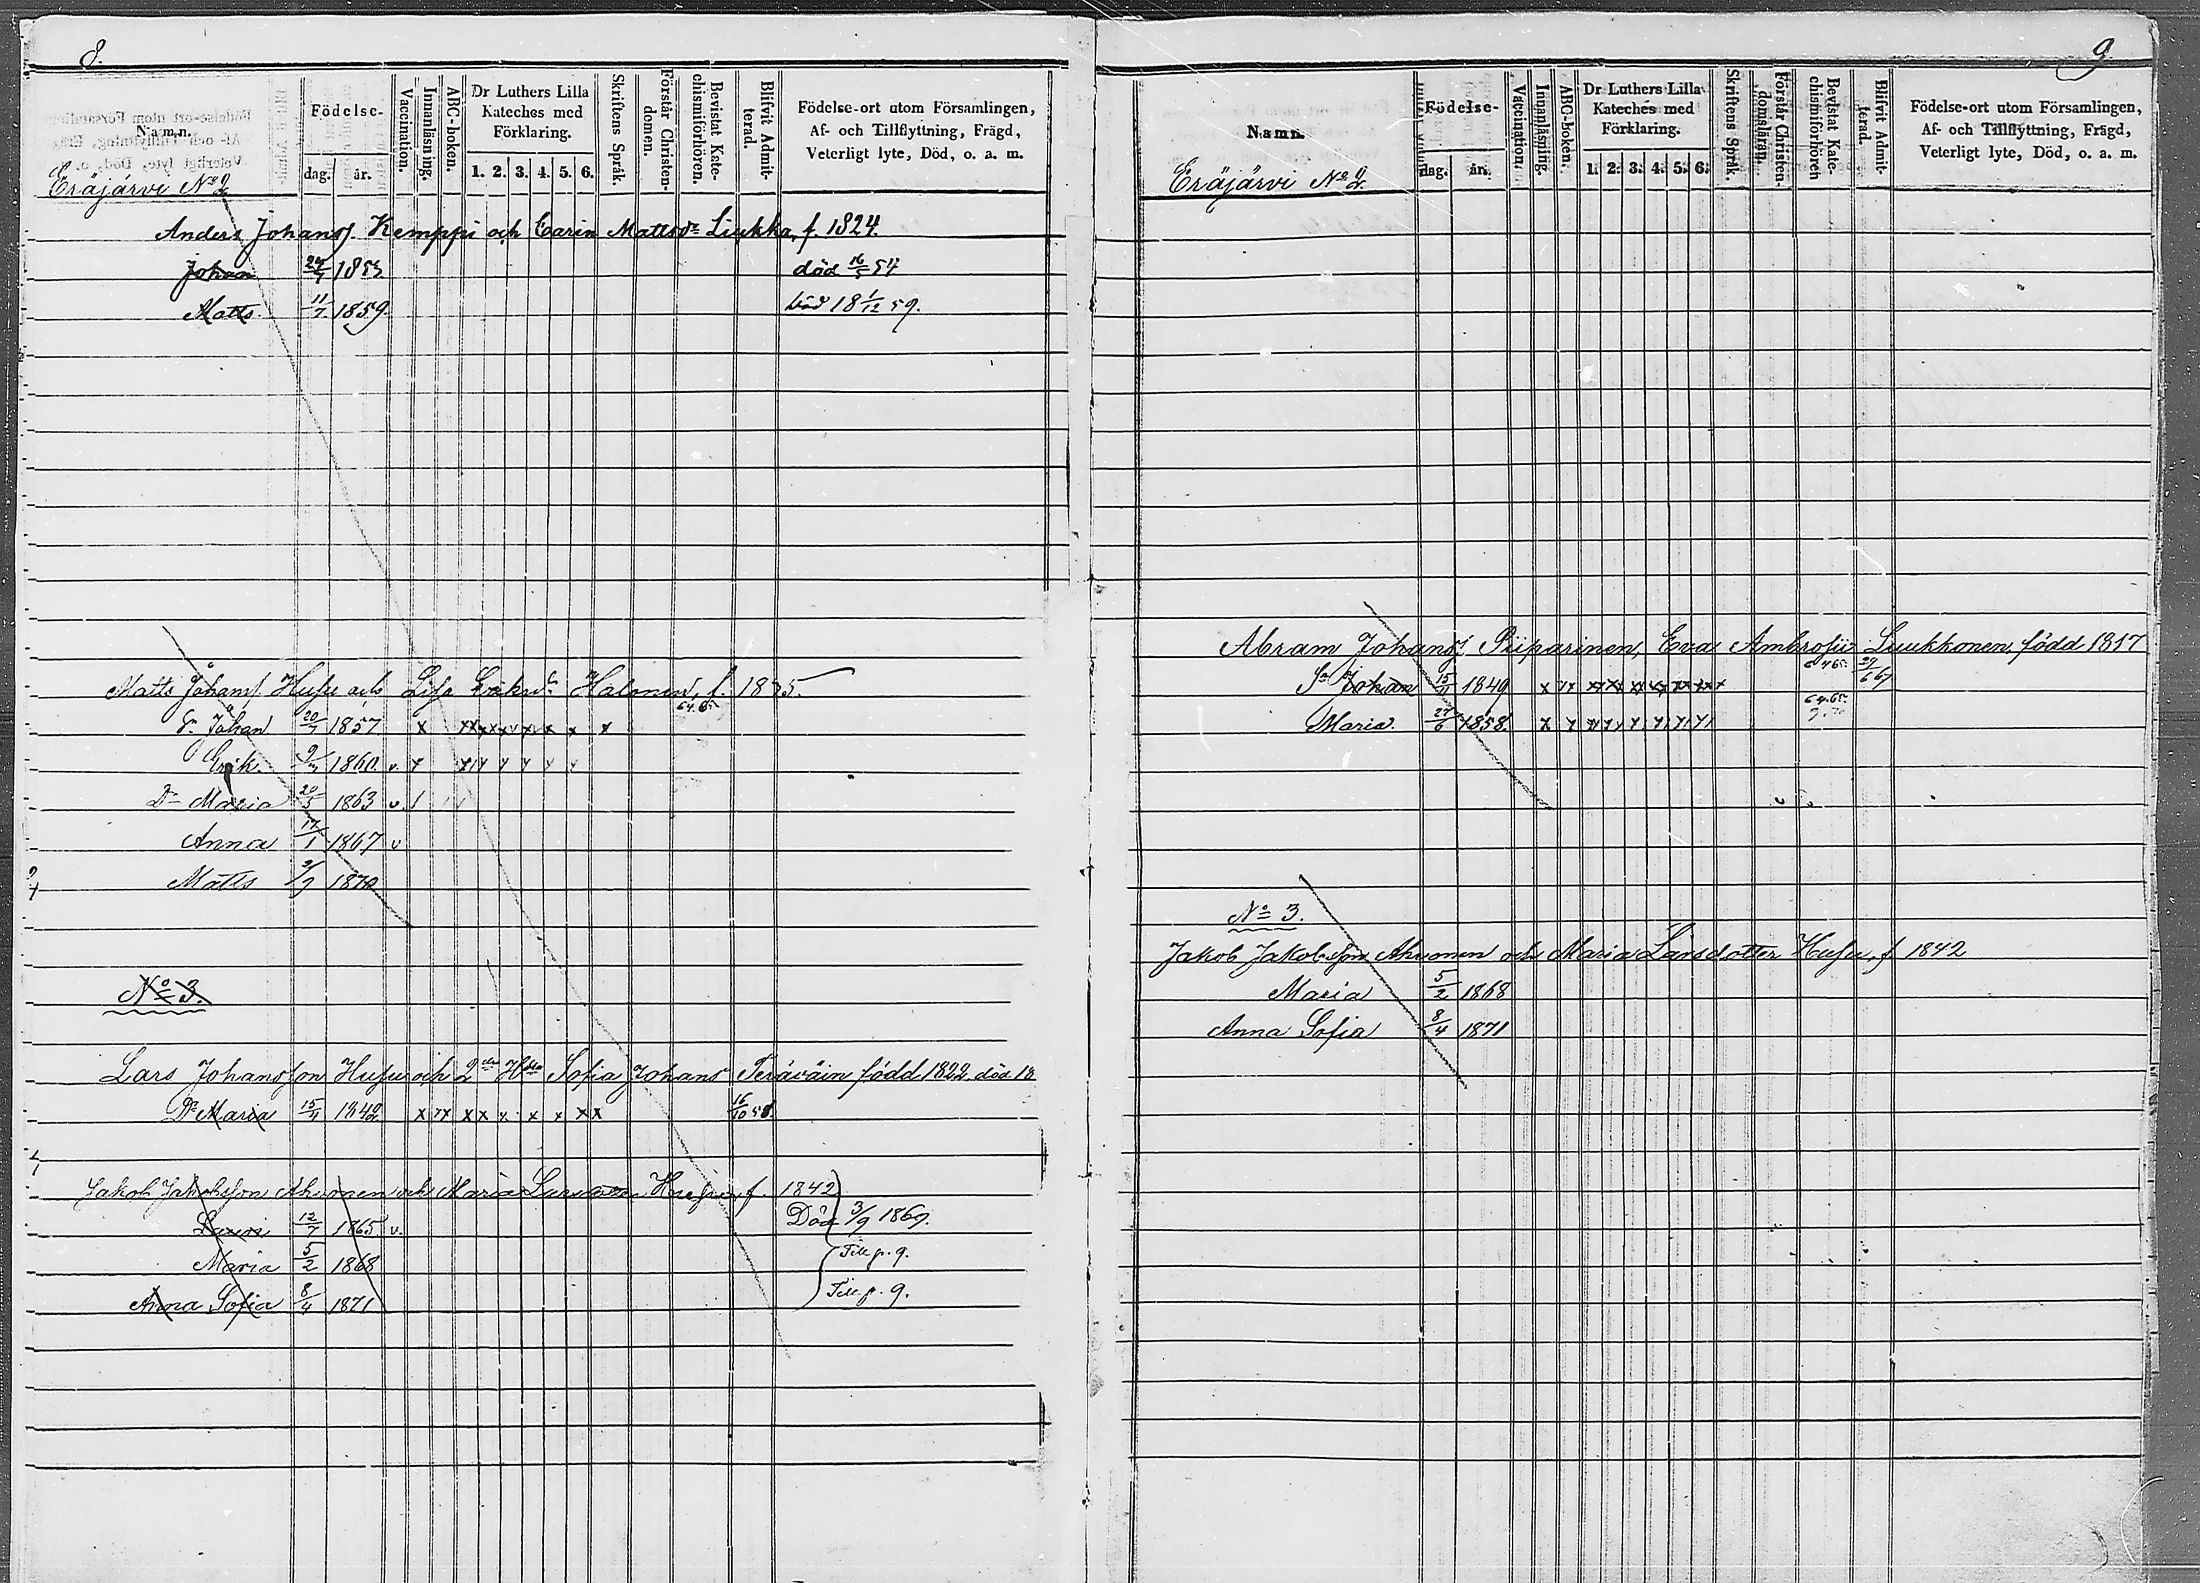 8.
Namn.
Födelse-
dag.
år.
Vaccination.
Innanläsning.
ABC-boken.
Dr Luthers Lilla
Kateches med
Förklaring.
1. 2. 3. 4. 5. 6.
Skriftens Språk.
Förstår Christen-
domen.
Bevistat Kate-
chismiförhören.
Blifvit Admit-
terad.
Födelse-ort utom Församlingen,
Af- och Tillflyttning, Frägd,
Veterligt lyte, Död, o. a. m.
Eräjärvi No 2
Anders Johanss. Kemppi och Carin Mattsdr Liukka, f. 1824.
Johan 24/7 1853 död 16/5 54
Matts 11/7 1859 död 18 1/12 59.
Matts Johanss. Husu och Lisa Eriksdr Halonen, f. 1835.
Sn Johan 20/7 1857 x
Erik 1860 v
Dr Maria 20/3 1863 v
Anna 17/1 1867 v
Matts 2/9 1870
No 3.
Lars Johansson Husu och 2dra Hru Sofia Johans Teräväin född 1822 död 18
Dr Maria 15/4 1842 x x x x x x x x x 16/10 58
Jakob Jakobsson Ahvonen och Maria Larsdotter Husu, f. 1842
Lauri 12/7 1865 v. Död 3/9 1869.
Maria 5/2 1868 Till p. 9.
Anna Sofia 8/4 1871 Till p. 9.
9
Namn.
Födelse-
dag.
år.
Vaccination.
Innanläsning.
ABC-boken.
Dr Luthers Lilla
Kateches med
Förklaring.
1. 2. 3. 4. 5. 6.
Skriftens Språk.
Förstår Christen-
domsläran.
Bevistat Kate-
chismiförhören
Blifvit Admit-
terad.
Födelse-ort utom Församlingen,
Af- och Tillflyttning, Frägd,
Veterligt lyte, Död, o. a. m.
Eräjärvi No 2
Abram Johanss. Piiparinen, Eva Ambrosii Luukkonen, född 1817
Sn Johan 15/11 1849 29/6 67
Maria 27/6 1858.
No 3.
Jakob Jakobsson Ahvonen och Maria Larsdotter Husu, f 1842
Maria 5/2 1868
Anna Sofia 8/4 1871